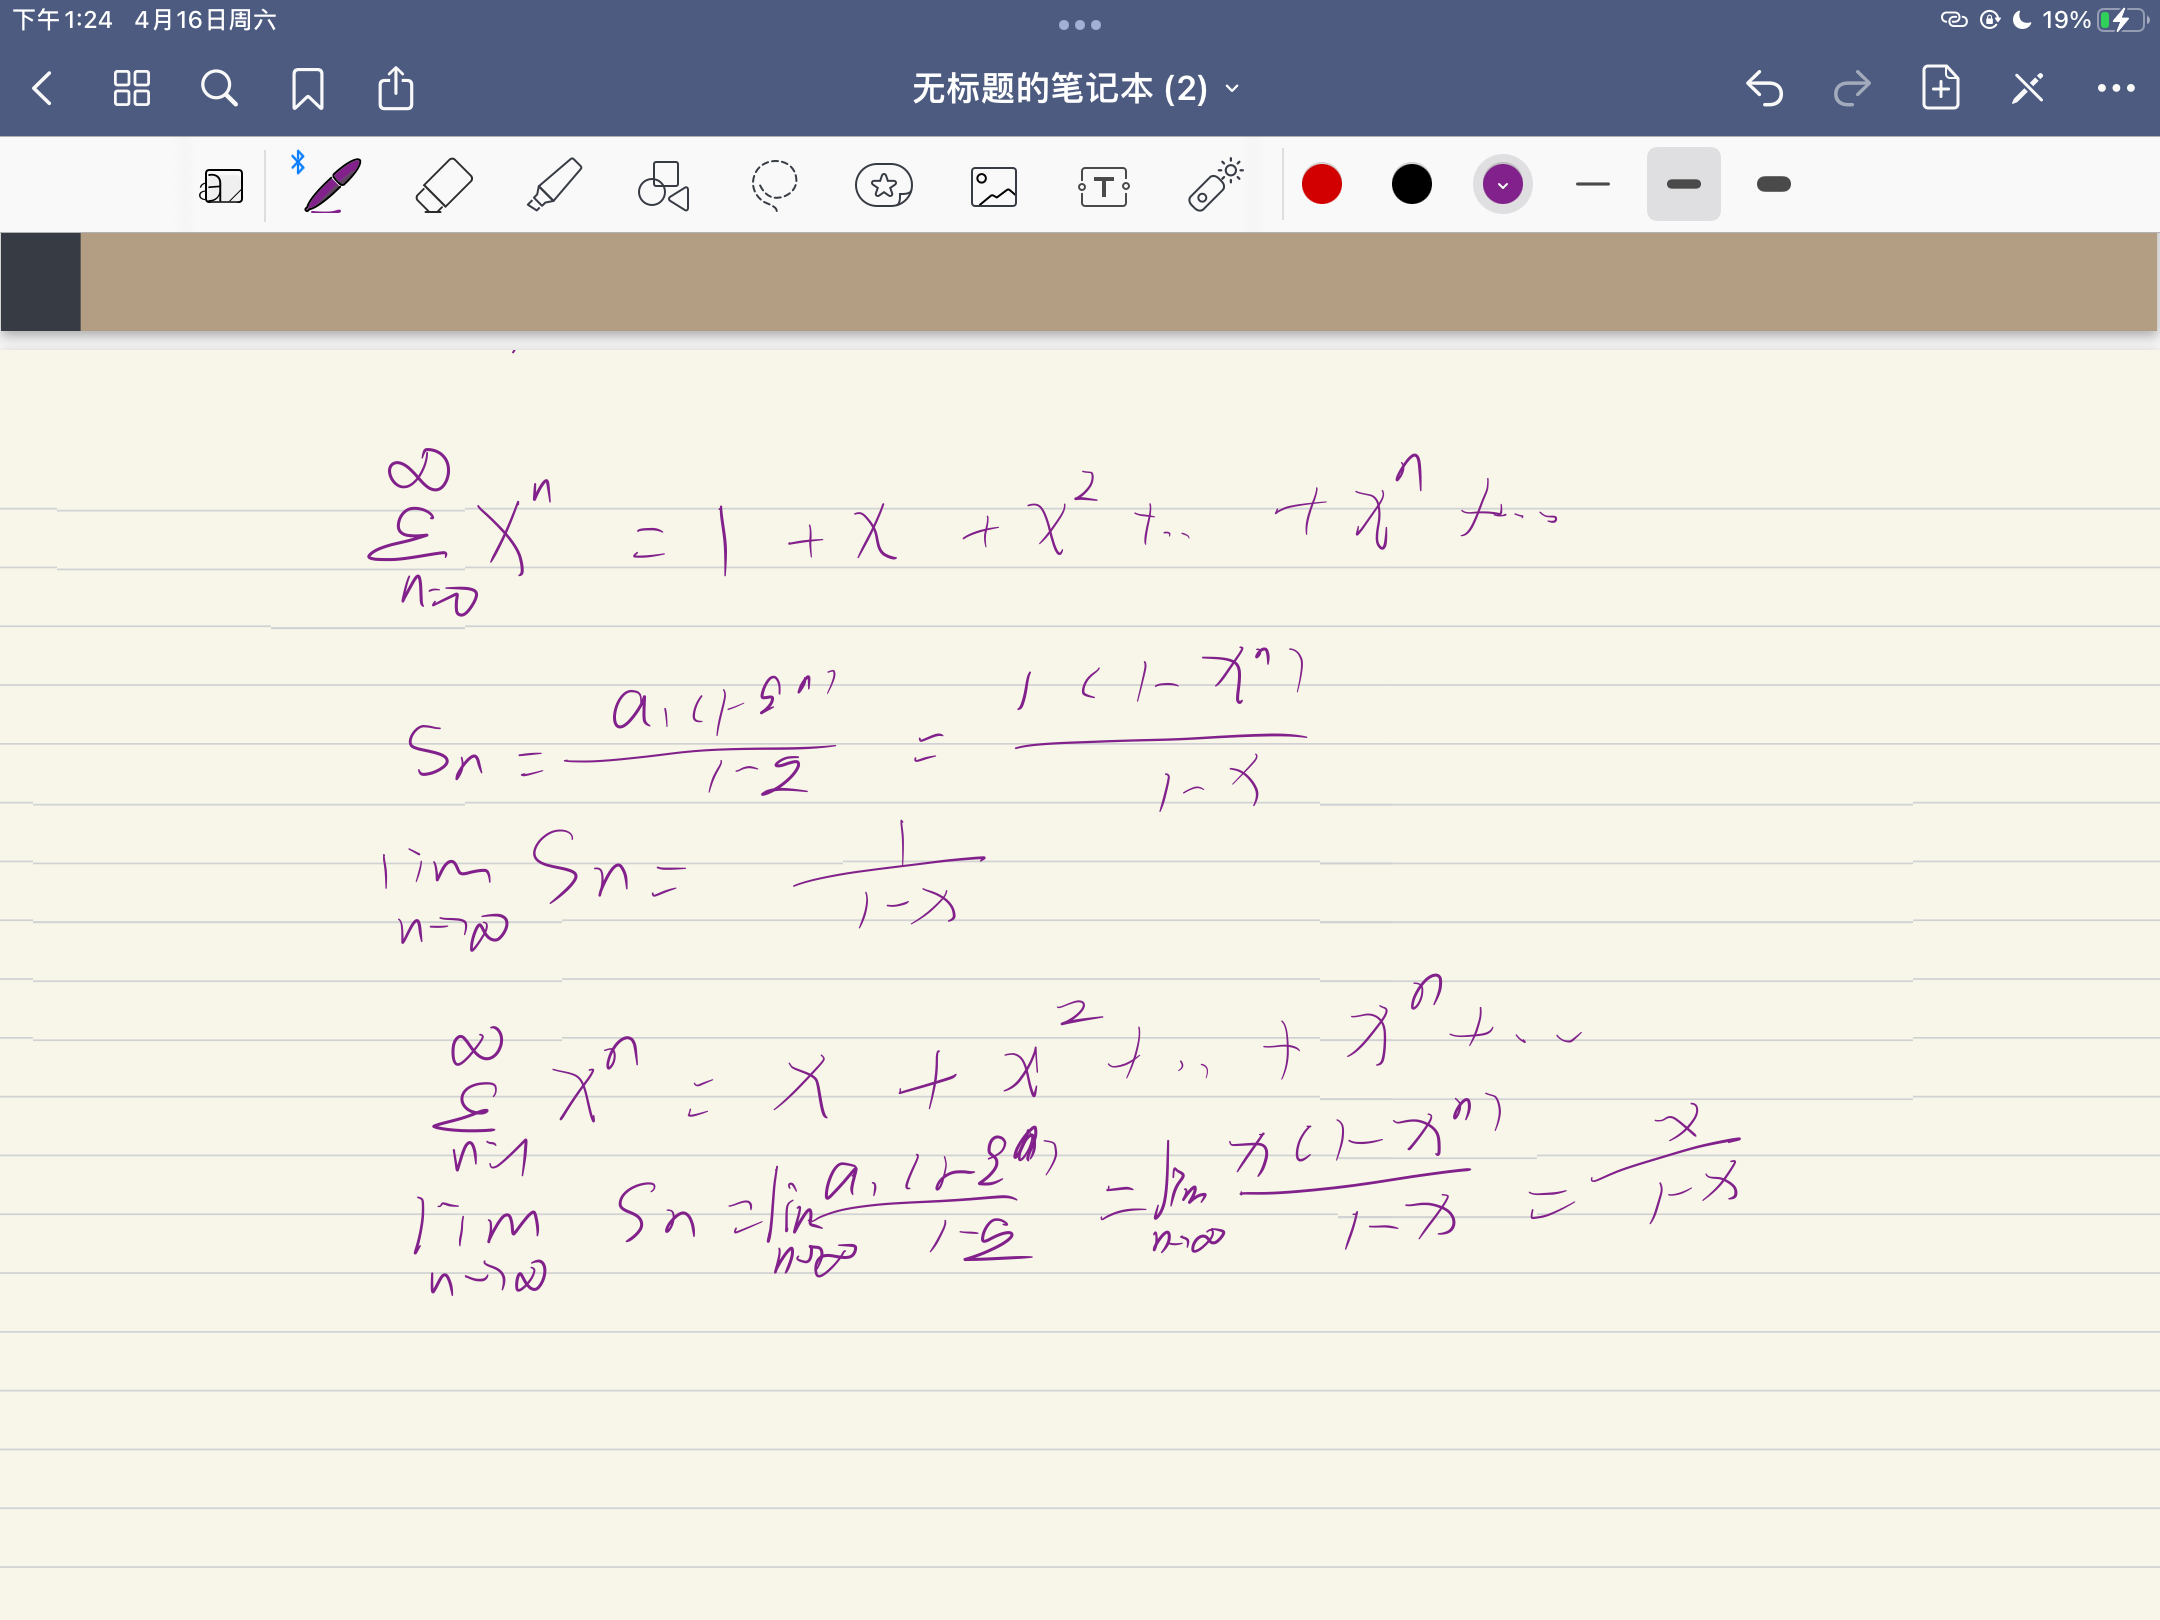 下午1:24 4月16日周六 19%
无标题的笔记本 (2)
∞
Σ xⁿ = 1 + x + x² + ... + xⁿ + ...
n=0
Sn = a₁(1-qⁿ) / 1-q = 1(1-xⁿ) / 1-x
lim Sn = 1 / 1-x
n→∞
∞
Σ xⁿ = x + x² + ... + xⁿ + ...
n=1
lim Sn = lim a₁(1-qⁿ) / 1-q = lim x(1-xⁿ) / 1-x = x / 1-x
n→∞ n→∞ n→∞